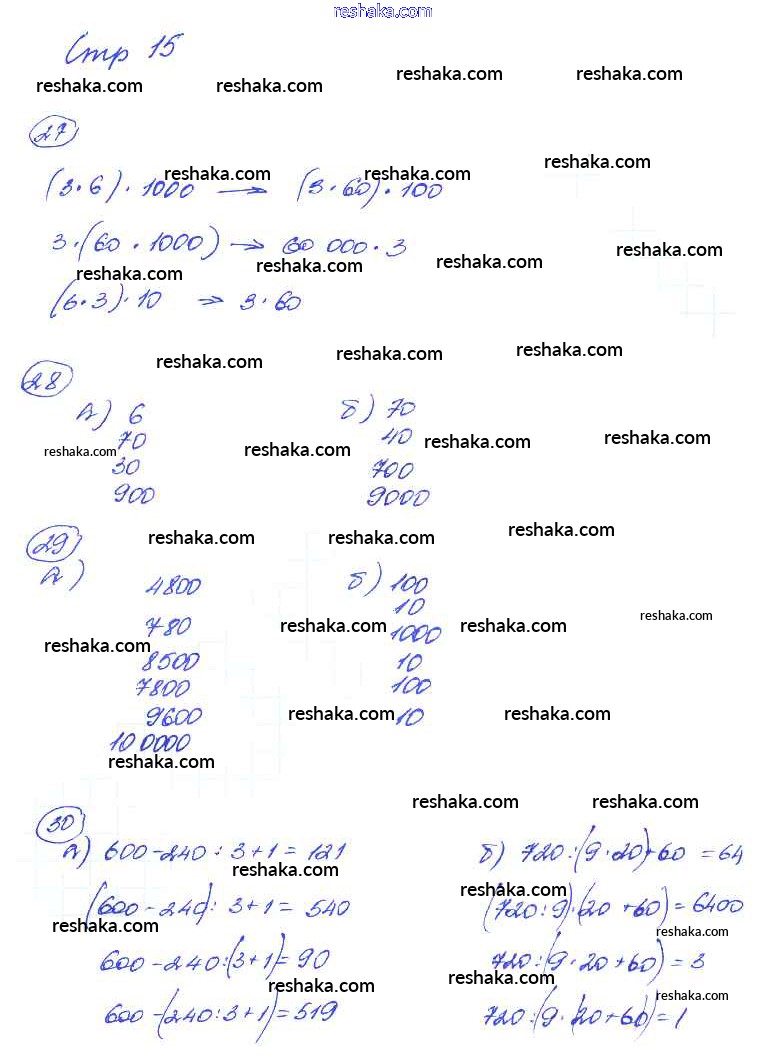 reshaka.com
Стр 15
reshaka.com reshaka.com reshaka.com reshaka.com
27
reshaka.com reshaka.com reshaka.com
(3·6)·1000 → (3·60)·100
3·(60·1000) → 60 000·3
reshaka.com reshaka.com reshaka.com reshaka.com
(6·3)·10 → 3·60
reshaka.com reshaka.com reshaka.com
28
А) 6 б) 70
70 40
reshaka.com reshaka.com reshaka.com reshaka.com
30 700
900 9000
29
reshaka.com reshaka.com reshaka.com
А) 4800 б) 100
10
780 1000
reshaka.com reshaka.com reshaka.com reshaka.com
8500 10
7800 100
9600 10
reshaka.com reshaka.com
100000
reshaka.com
30
reshaka.com reshaka.com
А) 600-240:3+1=121 б) 720:(9·20)+60=64
reshaka.com reshaka.com
(600-240):3+1=540 (720:9)·(20+60)=6400
reshaka.com
600-240:(3+1)=90 720:(9·20+60)=3
reshaka.com reshaka.com
600-(240:3+1)=519 720:(9·(20+60)=1
reshaka.com